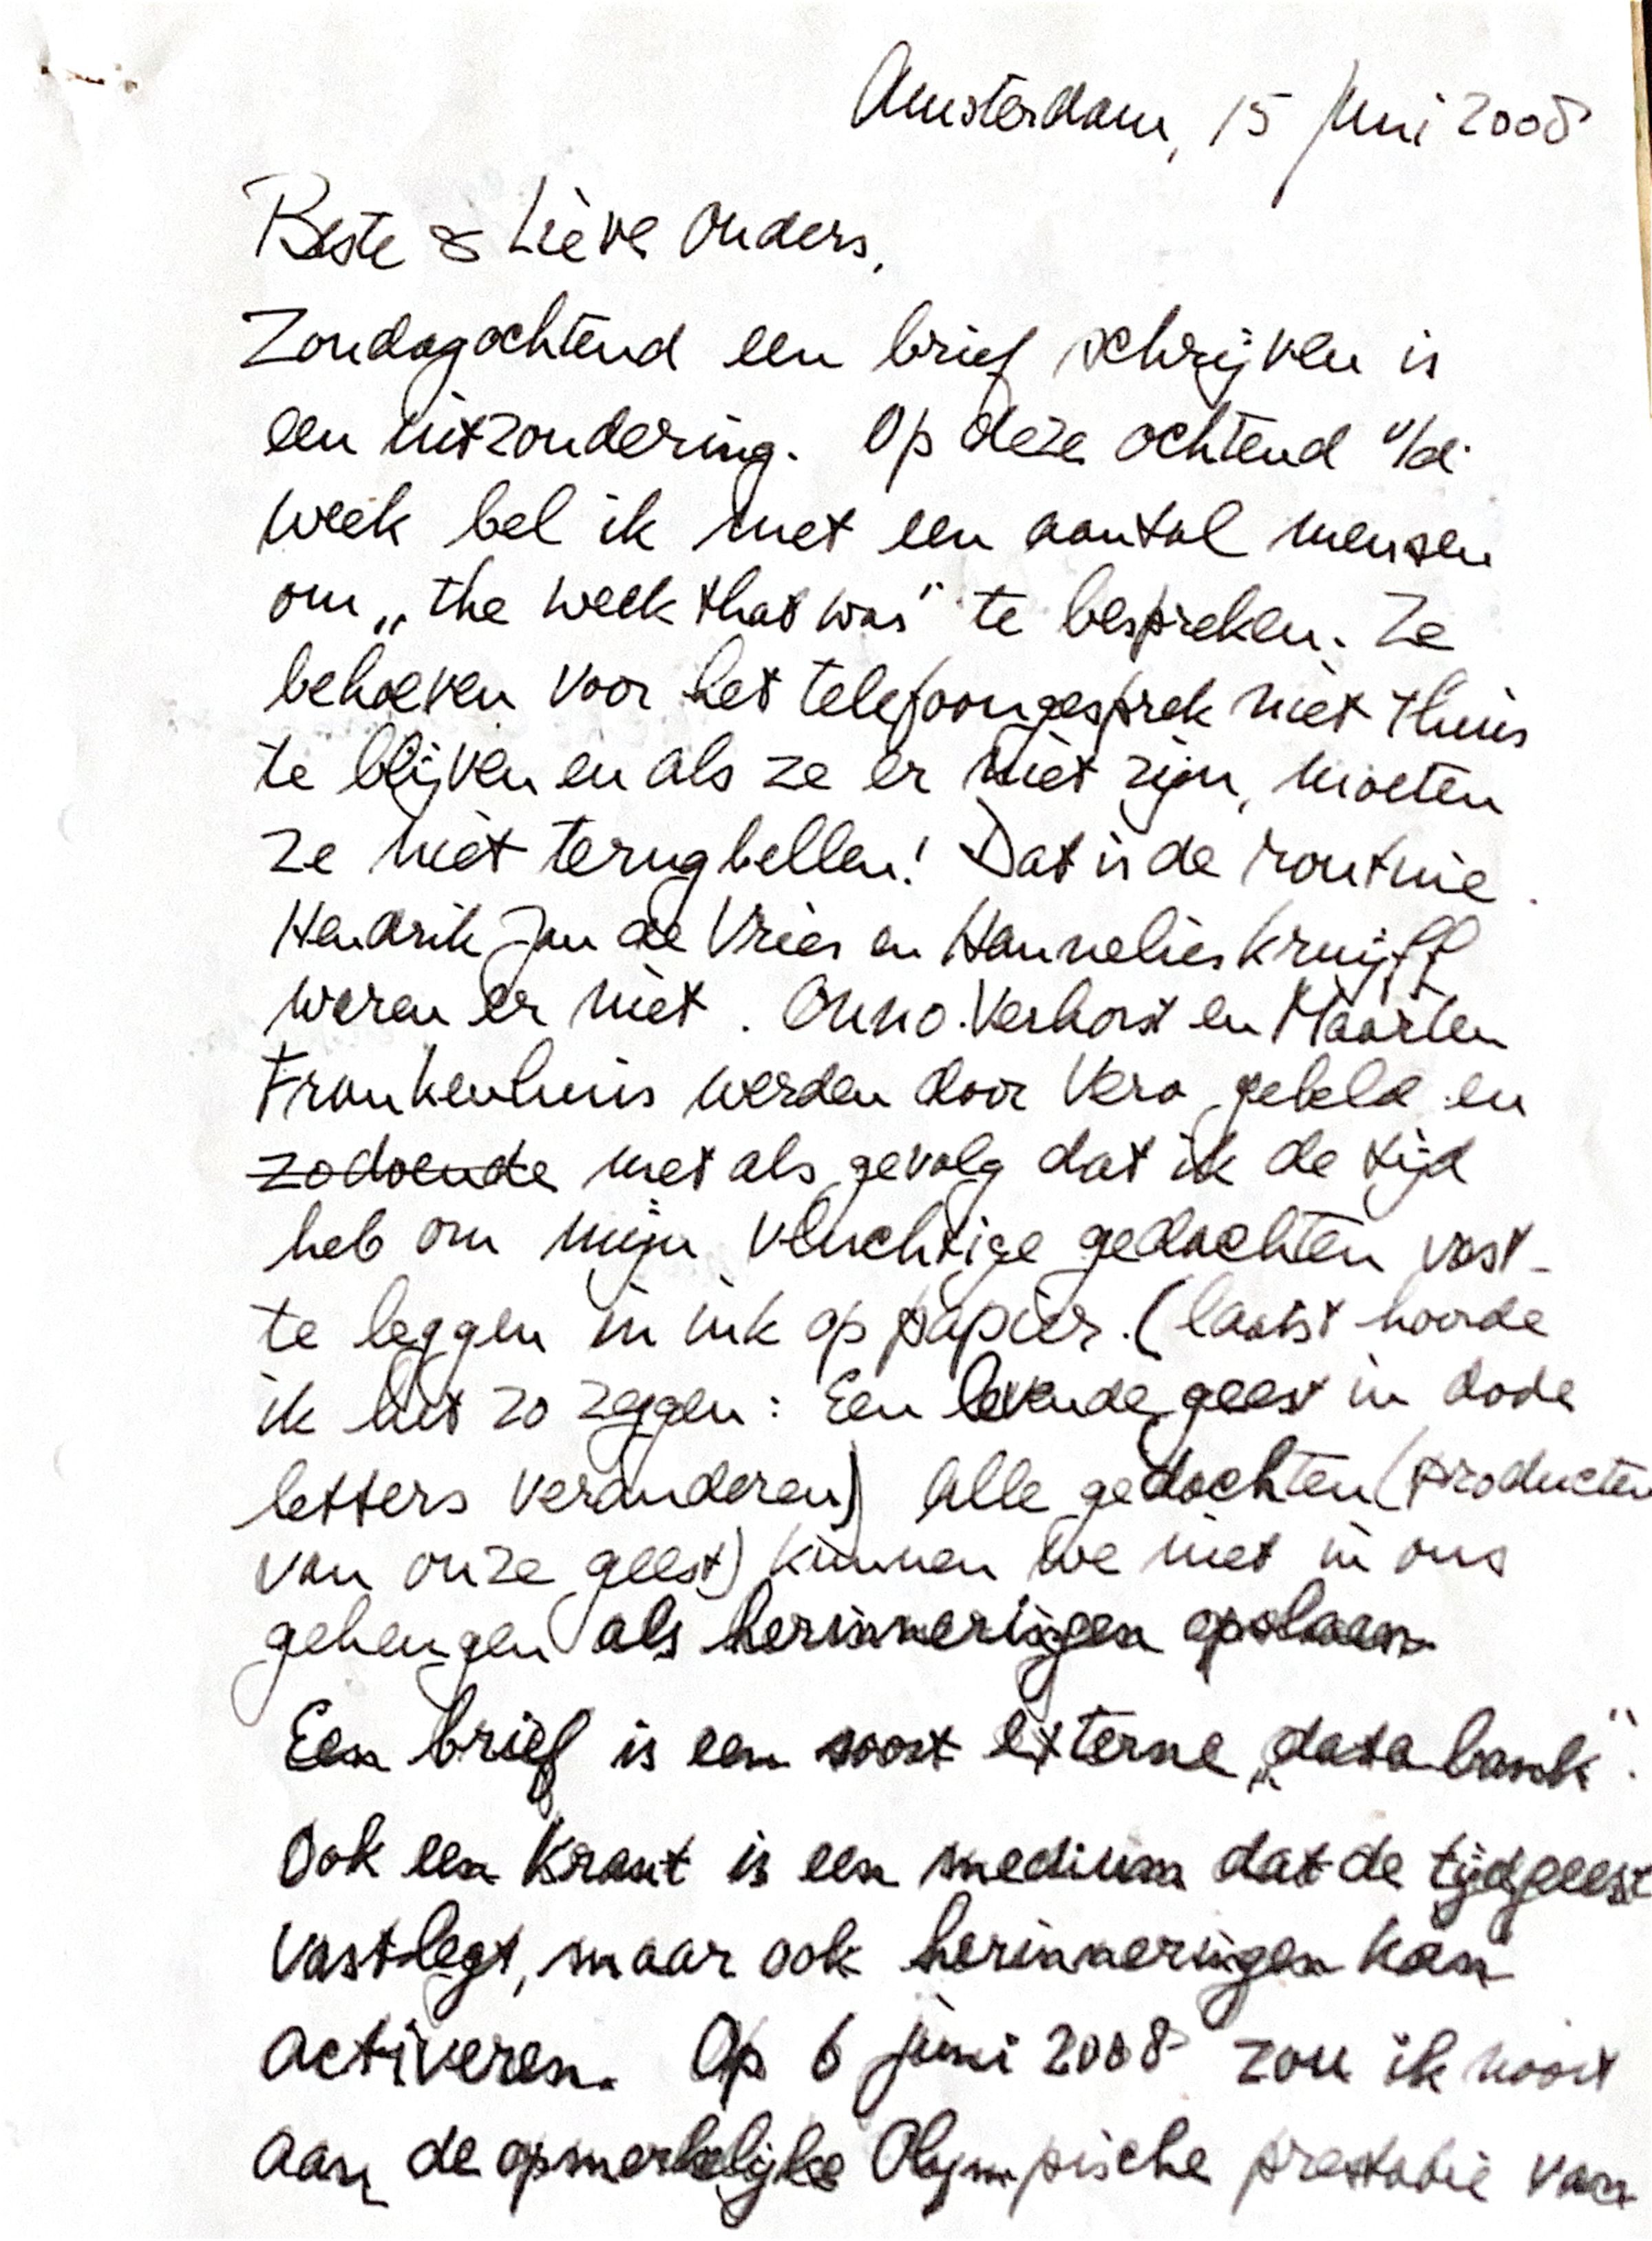 Amsterdam, 15 juni 2008
Beste & Lieve Ouders,
Zondagochtend een brief schrijven is
een uitzondering. Op deze ochtend v/d
week bel ik met een aantal mensen
om „the week that was" te bespreken. Ze
behoeven voor het telefoongesprek niet thuis
te blijven en als ze er niet zijn, moeten
ze niet terugbellen! Dat is de routine.
Hendrik Jan de Vries en Hannelies Kruijff
waren er niet. Onno Verhorst en Maarten
Frankenhuis werden door Vera gebeld en
zodoende met als gevolg dat ik de tijd
heb om mijn vluchtige gedachten vast-
te leggen in ink op papier. (laatst hoorde
ik het zo zeggen: Een levende geest in dode
letters veranderen) Alle gedachten (producten
van onze geest) kunnen we niet in ons
geheugen als herinneringen opslaan
Een brief is een soort externe „databank".
Ook een krant is een medium dat de tijdgeest
vastlegt, maar ook herinneringen kan
activeren. Op 6 juni 2008 zou ik nooit
aan de opmerkelijke Olympische prestatie van